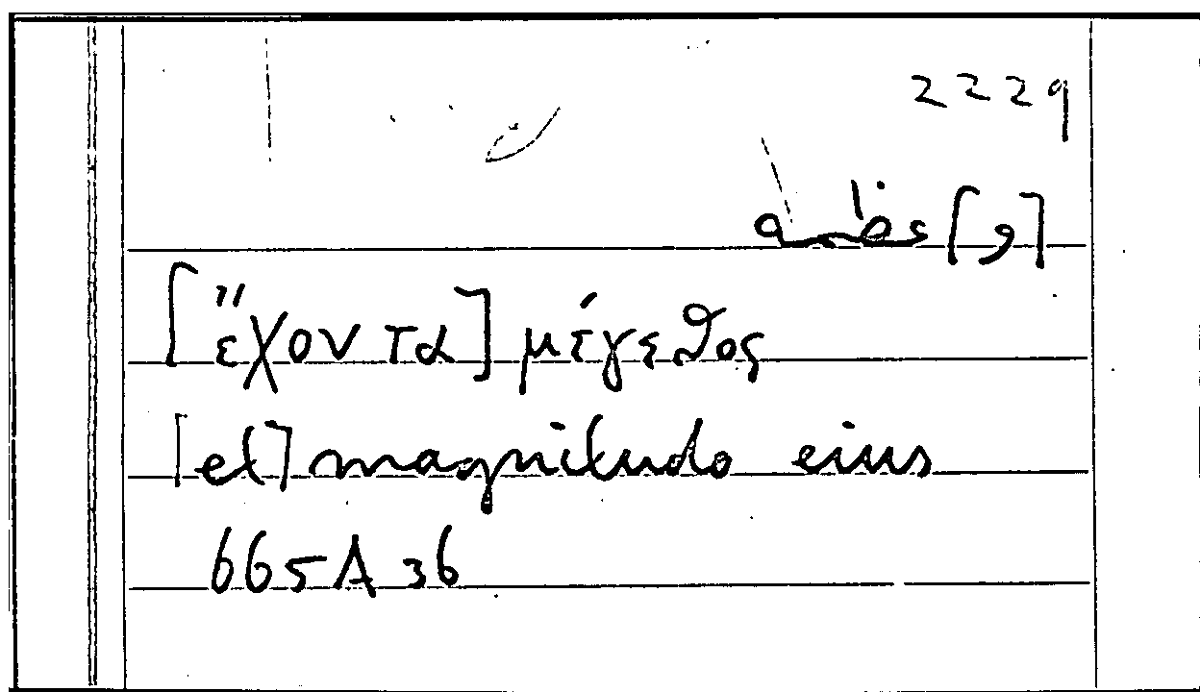 2229
[و] عظمه
[ἔχοντα] μέγεθος
[et] magnitudo eius
665A36